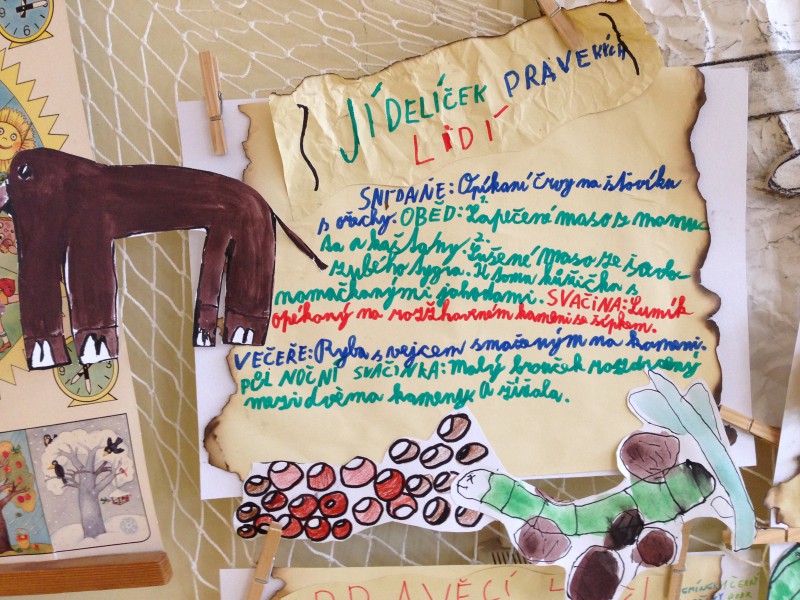 JÍDELÍČEK PRAVĚKÝCH
LIDÍ
SNÍDANĚ: Opíkaní črvy na šťovíku
s ořechy. OBĚD: Zapečené maso z mamu
ta a kaštany. 2. Sušené maso ze šavlo
zubého tygra. K tomu kůžička s
namačkanými jahodami. SVAČINA: Lumík
opékaný na rozžhaveném kameni se zýpkem.
VEČEŘE: Ryba s vejcem smaženým na kameni.
PŮL NOČNÍ SVAČINKA: Malý brouček rozdrcený
mezi dvěma kameny. A žížala.
PRAVĚCÍ L